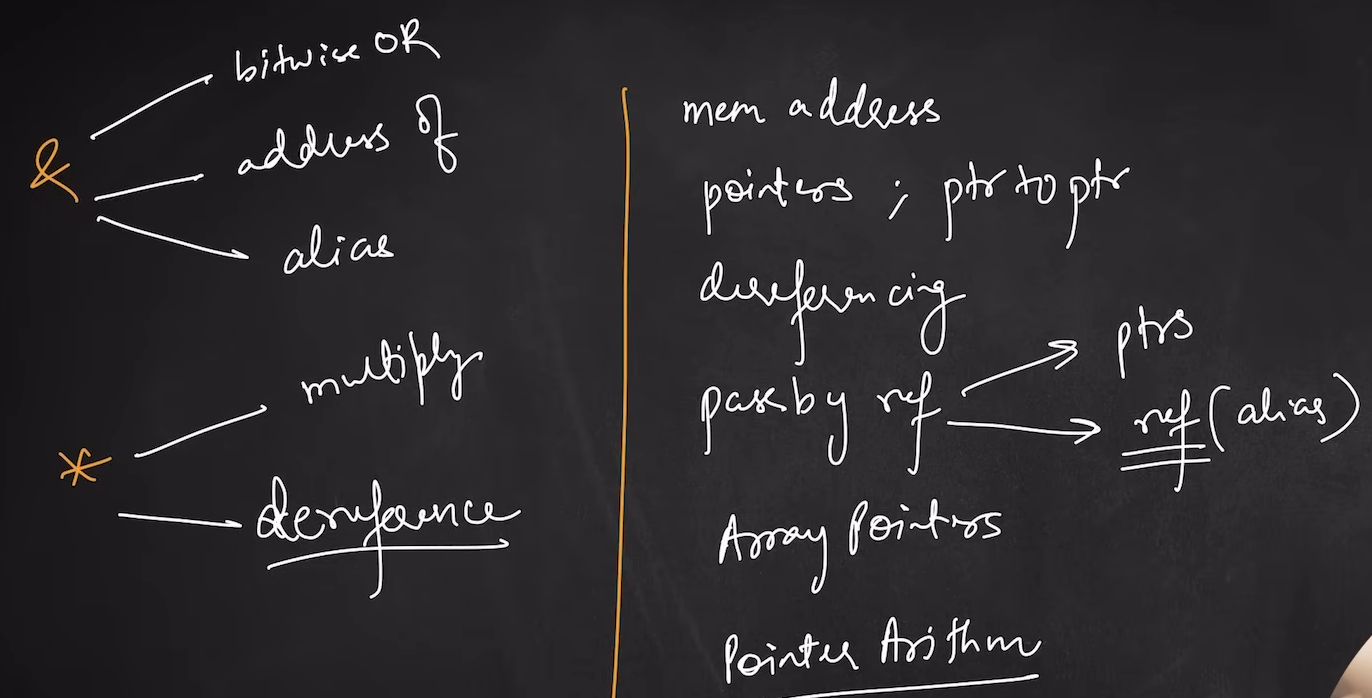 &
bitwise OR
address of
alias
*
multiply
dereference
mem address
pointers ; ptr to ptr
dereferencing
pass by ref
ptrs
ref (alias)
Array Pointers
Pointer Arithm